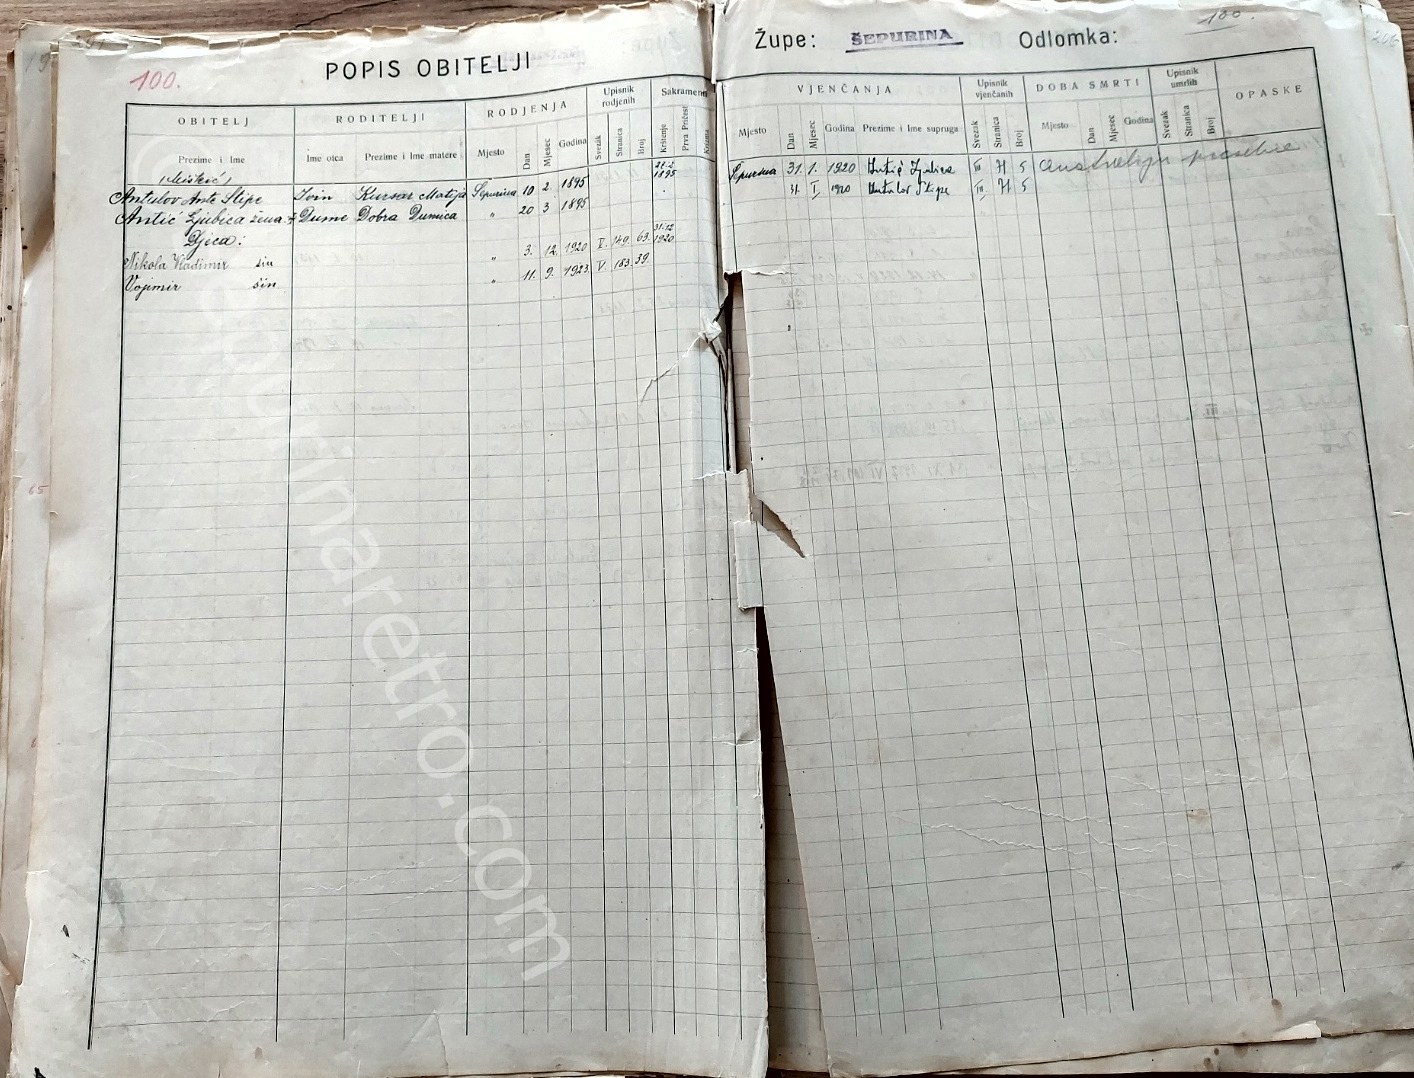 100.
POPIS OBITELJI
Župe: ŠEPURINA Odlomka:
100.
OBITELJ RODITELJI RODJENJA Upisnik rodjenih Sakramenti
Prezime i Ime Ime otca Prezime i Ime matere Mjesto Dan Mjesec Godina Svezak Stranica Broj Krštenje Prva Pričest Krizma
VJENČANJA Upisnik vjenčanih DOBA SMRTI Upisnik umrlih OPASKE
Mjesto Dan Mjesec Godina Prezime i Ime supruga Svezak Stranica Broj Mjesto Dan Mjesec Godina Svezak Stranica Broj
Antulov Ante Stipe Ivin Kursar Matija Šepurina 10 2. 1895 21.2 1895 Šepurina 31. 1. 1920 Antić Ljubica III 71 5
Antić Ljubica žena Dume Dobra Dumica " 20 3 1895 31. I. 1920 Antulov Stipe III 71 5
Djeca:
Nikola Vladimir sin " 3. 12. 1920 V. 149. 63. 31.12 1920
Vojimir sin " 11. 9. 1923. V. 183. 39.
©sepurinaretro.com